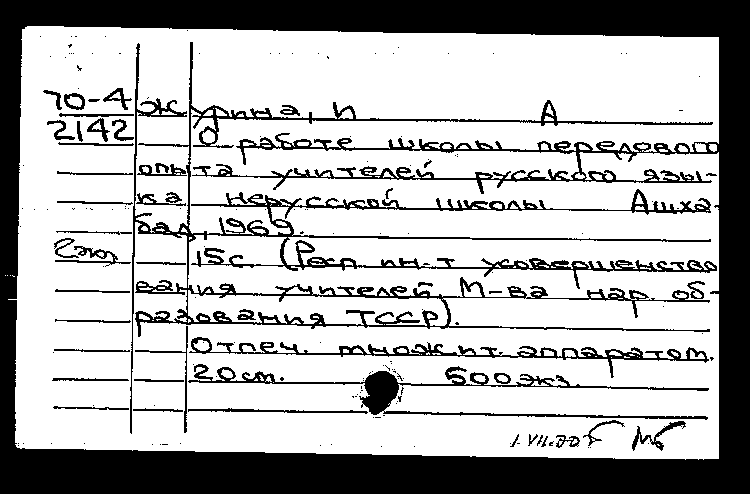 70-4 Журина, И А
2142 О работе школы передового
опыта учителей русского язы-
ка нерусской школы. Ашха-
бад, 1969.
2экз 15с. (Респ ин-т усовершенство
вания учителей М-ва нар. об-
разования ТССР).
Отпеч. множит. аппаратом.
20см. 500экз.
1.VII.70г Мб